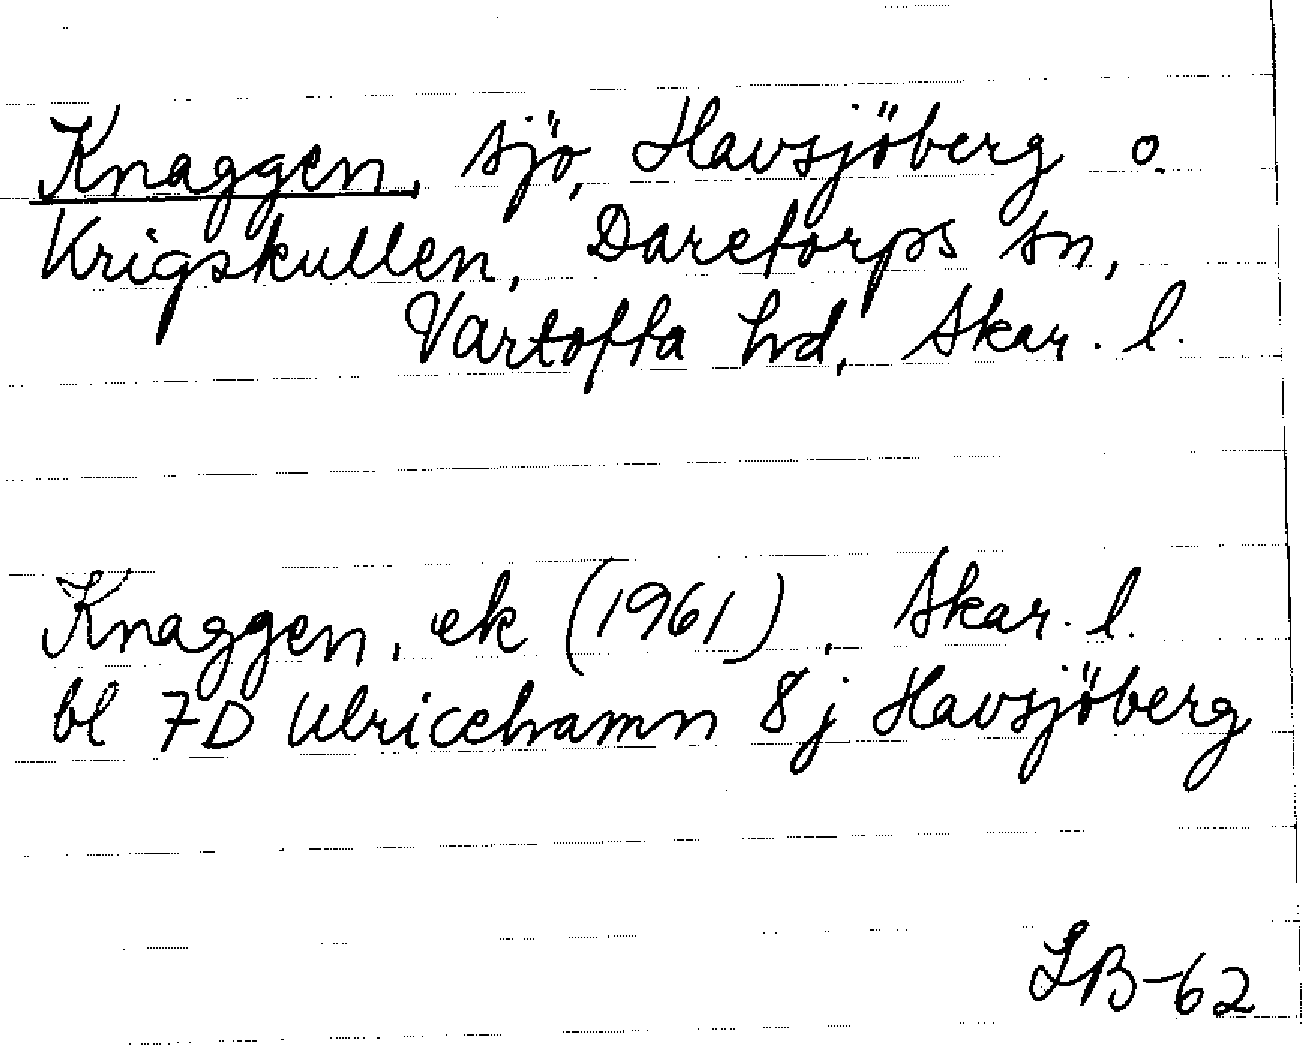 Knaggen, sjö, Havsjöberg o.
Krigskullen, Daretorps sn,
Vartofta hd, Skar. l.
Knaggen, ek (1961), Skar. l.
bl 7D Ulricehamn 8j Havsjöberg
LB-62